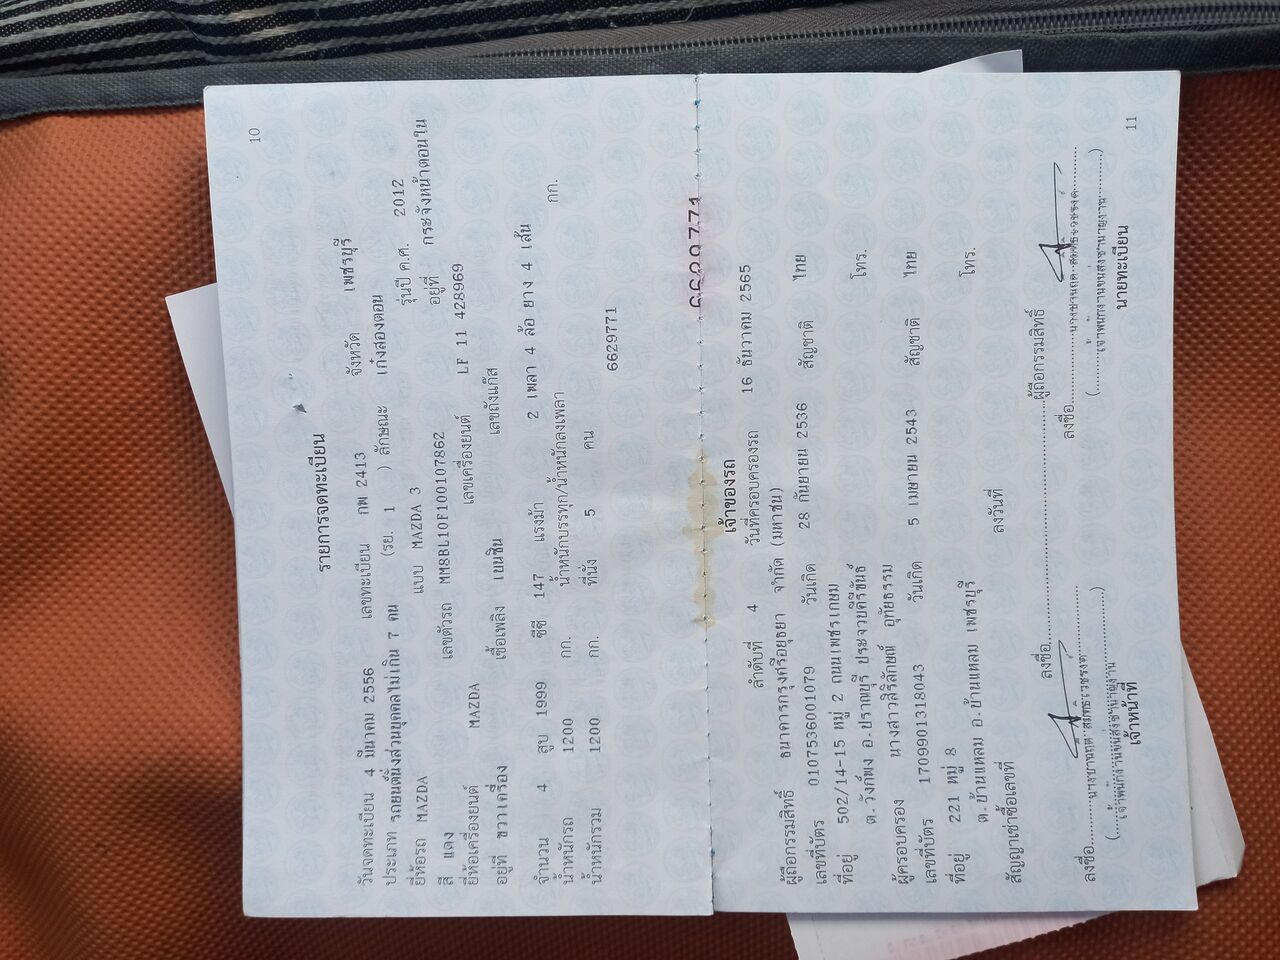 10
รายการจดทะเบียน
วันจดทะเบียน 4 มีนาคม 2556 เลขทะเบียน กพ 2413 จังหวัด เพชรบุรี
ประเภท รถยนต์นั่งส่วนบุคคลไม่เกิน 7 คน (รย. 1 ) ลักษณะ เก๋งสองตอน
ยี่ห้อรถ MAZDA แบบ MAZDA 3 รุ่นปี ค.ศ. 2012
สี แดง เลขตัวรถ MM8BL10F100107862 อยู่ที่ กระจังหน้าตอนใน
ยี่ห้อเครื่องยนต์ MAZDA เลขเครื่องยนต์ LF 11 428969
อยู่ที่ ขวาเครื่อง เชื้อเพลิง เบนซิน เลขถังแก๊ส
จำนวน 4 สูบ 1999 ซีซี 147 แรงม้า 2 เพลา 4 ล้อ ยาง 4 เส้น
น้ำหนักรถ 1200 กก. น้ำหนักบรรทุก/น้ำหนักลงเพลา กก.
น้ำหนักรวม 1200 กก. ที่นั่ง 5 คน
6629771
6629771
เจ้าของรถ
ลำดับที่ 4 วันที่ครอบครองรถ 16 ธันวาคม 2565
ผู้ถือกรรมสิทธิ์ ธนาคารกรุงศรีอยุธยา จำกัด (มหาชน)
เลขที่บัตร 0107536001079 วันเกิด 28 กันยายน 2536 สัญชาติ ไทย
ที่อยู่ 502/14-15 หมู่ 2 ถนนเพชรเกษม
ต.วังก์พง อ.ปราณบุรี ประจวบคีรีขันธ์ โทร.
ผู้ครอบครอง นางสาวสิริลักษณ์ อุทัยธรรม
เลขที่บัตร 1709901318043 วันเกิด 5 เมษายน 2543 สัญชาติ ไทย
ที่อยู่ 221 หมู่ 8
ต.บ้านแหลม อ.บ้านแหลม เพชรบุรี โทร.
สัญญาเช่าซื้อเลขที่ ลงวันที่
ลงชื่อ ผู้ถือกรรมสิทธิ์
ลงชื่อ ลงชื่อ
(เจ้าพนักงานขนส่งชำนาญงาน) (เจ้าพนักงานขนส่งชำนาญงาน)
เจ้าหน้าที่ นายทะเบียน
11